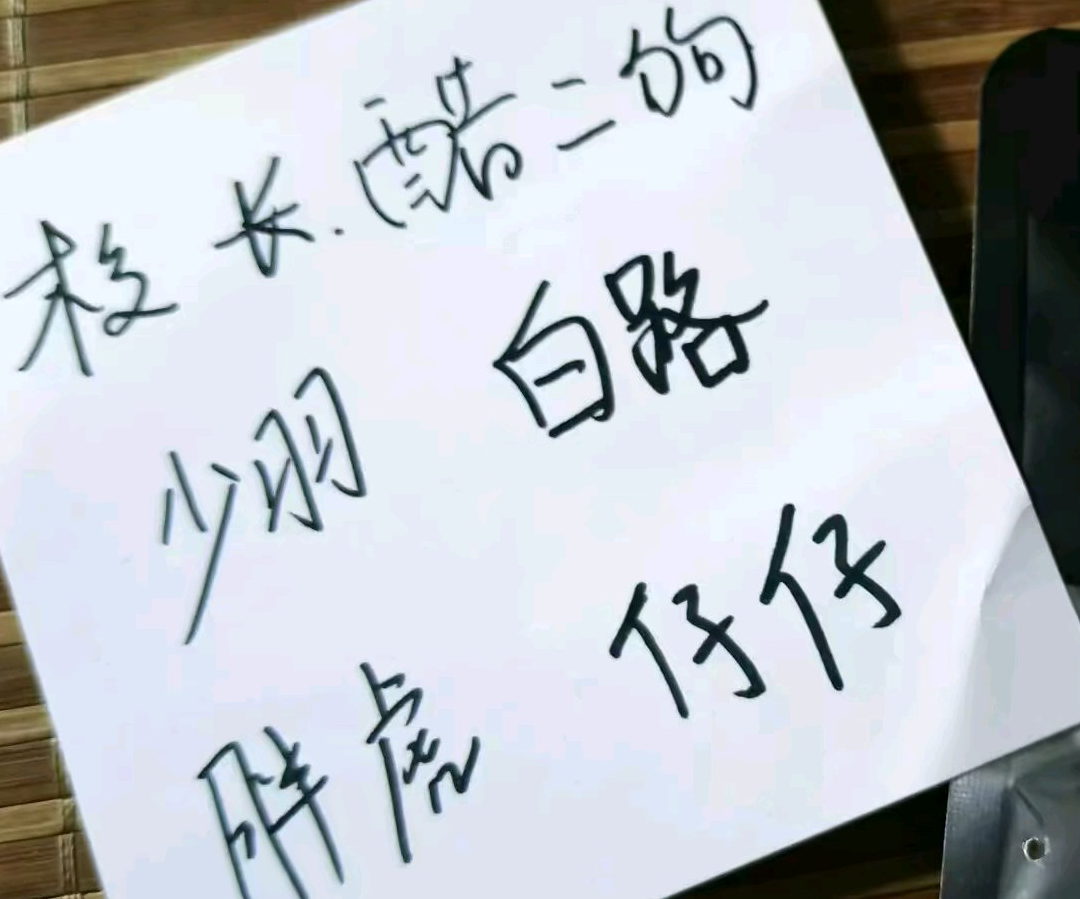 校长.醋二的
少羽 白路
胖虎 仔仔